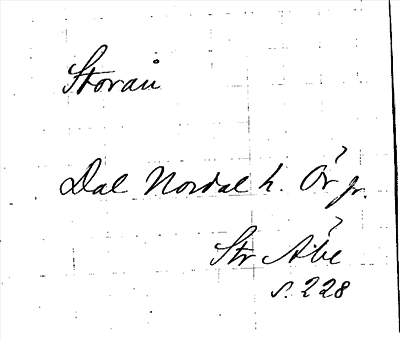 Storån
Dal Nordal h. Ör gr.
Str Åbe
s. 228